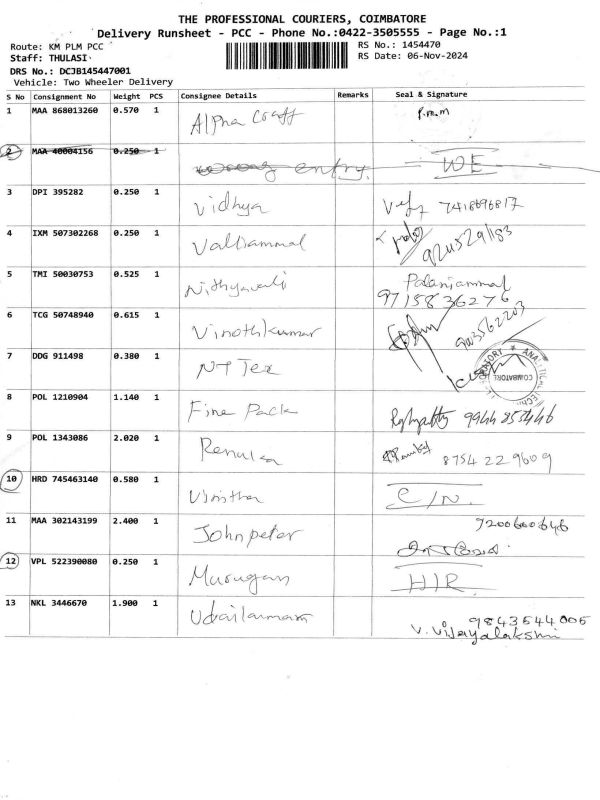 THE PROFESSIONAL COURIERS, COIMBATORE
Delivery Runsheet - PCC - Phone No.:0422-3505555 - Page No.:1
Route: KM PLM PCC
RS No.: 1454470
Staff: THULASI
RS Date: 06-Nov-2024
DRS No.: DCJB145447001
Vehicle: Two Wheeler Delivery
S No Consignment No Weight PCS Consignee Details Remarks Seal & Signature
1 MAA 868013260 0.570 1 Alpha
2 MAA 40004156 0.250 1 wrong entry. WE
3 DPI 395282 0.250 1 Vidhya 7418696817
4 IXM 507302268 0.250 1 Valliammal
5 TMI 50030753 0.525 1 Palaniammal
9715836276
6 TCG 50748940 0.615 1 Vinothkumar
7 DDG 911498 0.380 1 NT Tex
COIMBATORE
8 POL 1210904 1.140 1 Fine Pack 9944853446
9 POL 1343086 2.020 1 Renuka 8754229609
10 HRD 745463140 0.580 1
11 MAA 302143199 2.400 1 John peter 9200600646
12 VPL 522390080 0.250 1 Murugan HIR
13 NKL 3446670 1.900 1 9843544005
V. Vijayalakshmi